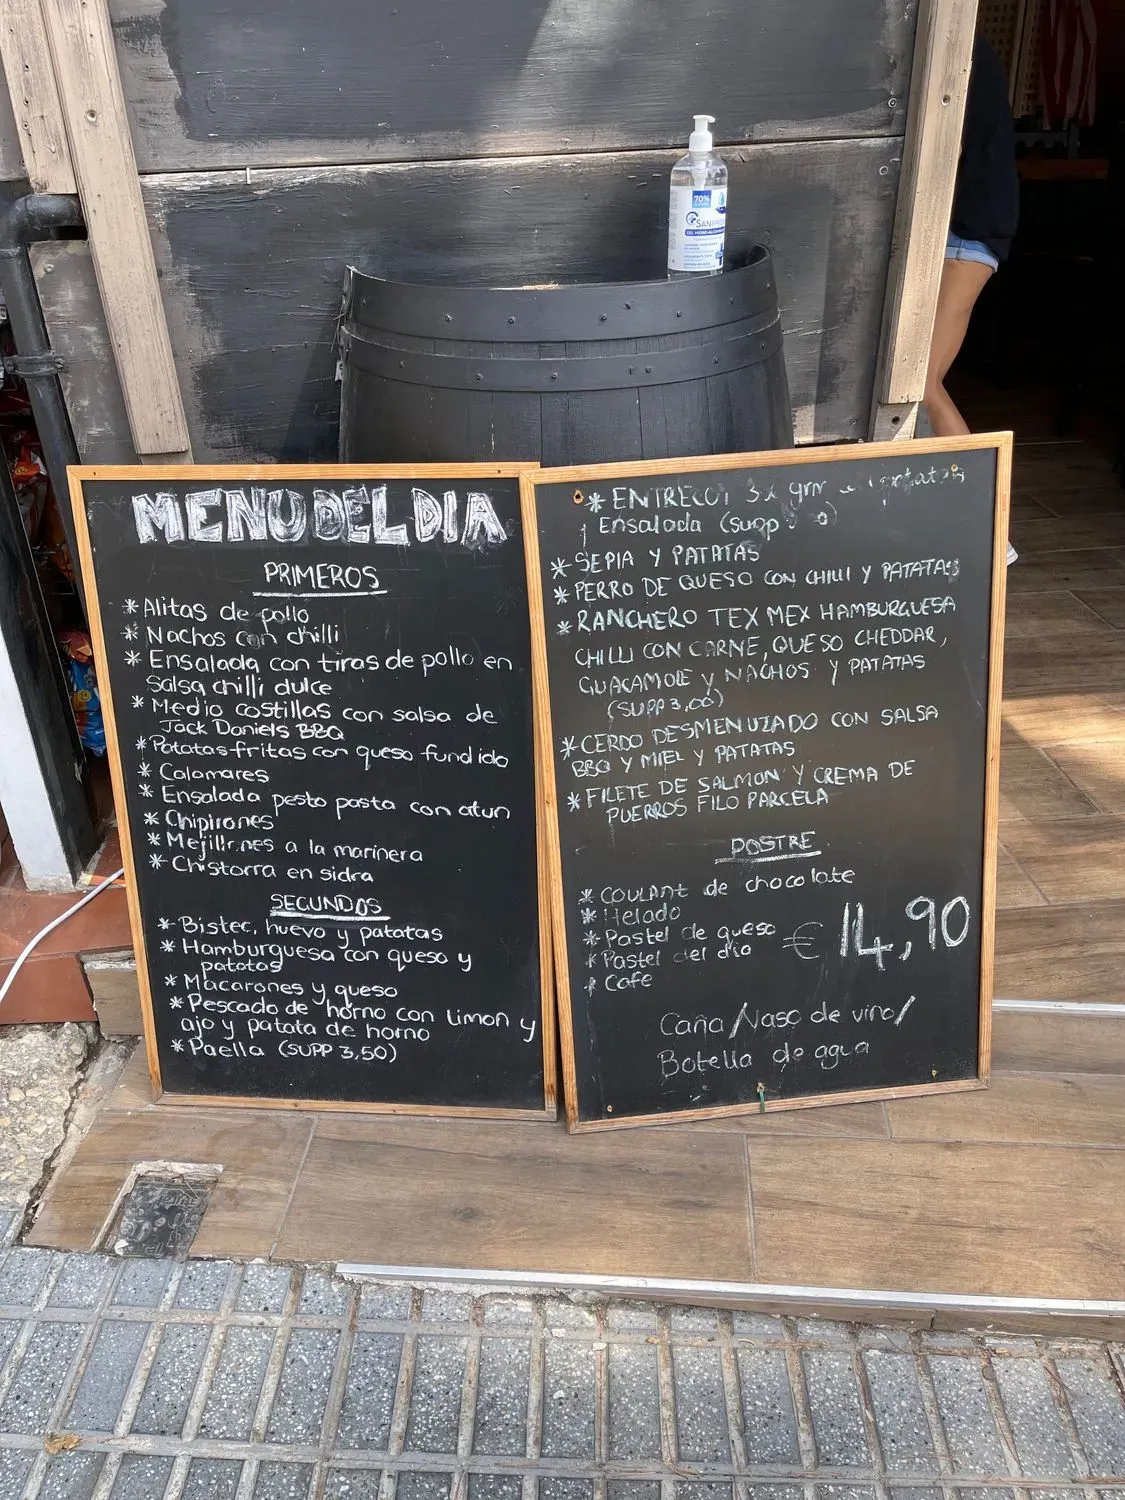 70%
MENU DEL DIA
PRIMEROS
* Alitas de pollo
* Nachos con chilli
* Ensalada con tiras de pollo en
salsa chilli dulce
* Medio costillas con salsa de
Jack Daniels BBQ
* Patatas fritas con queso fundido
* Calamares
* Ensalada pesto pasta con atun
* Chipirones
* Mejillones a la marinera
* Chistorra en sidra
SECUNDOS
* Bistec, huevo y patatas
* Hamburguesa con queso y
patatas
* Macarones y queso
* Pescado de horno con limon y
ajo y patata de horno
* Paella (SUPP 3,50)
* ENTRECOT grm patatas
Ensalada (supp
* SEPIA Y PATATAS
* PERRO DE QUESO CON CHILLI Y PATATAS
* RANCHERO TEX MEX HAMBURGUESA
CHILLI CON CARNE, QUESO CHEDDAR,
GUACAMOLE y NACHOS y PATATAS
(SUPP 3,00)
* CERDO DESMENUZADO CON SALSA
BBQ Y MIEL Y PATATAS
* FILETE DE SALMON Y CREMA DE
PUERROS FILO PARCELA
POSTRE
* COULANT de chocolate
* Helado
* Pastel de queso
* Pastel del dia
* Cafe
€ 14,90
Caña/Vaso de vino/
Botella de agua